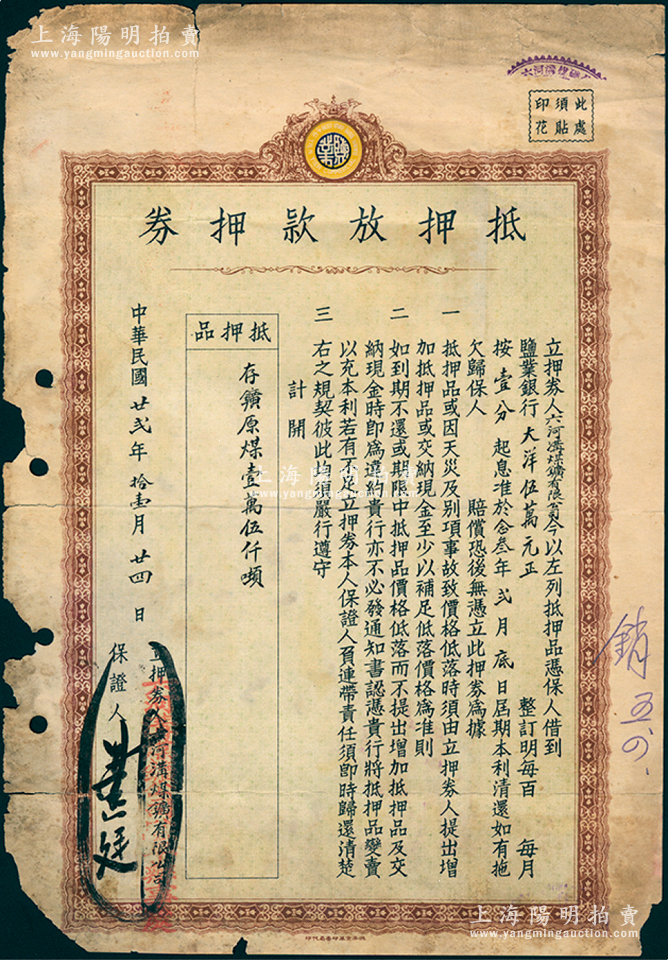 上海陽明拍賣
www.yangmingauction.com
六河溝煤礦
此處
須貼
印花
鹽業
抵押放款押券
立押券人六河溝煤礦有限公司今以左列抵押品憑保人借到
鹽業銀行大洋伍萬元正 整訂明每百 每月
按壹分起息准於念叁年弍月底日屆期本利清還如有拖
欠歸保人 賠償恐後無憑立此押券為據
一 抵押品或因天災及別項事故致價格低落時須由立押券人提出增
加抵押品或交納現金至少以補足低落價格為準則
二 如到期不還或期限中抵押品價格低落而不提出增加抵押品及交
納現金時即為違約貴行亦不必發通知書認憑貴行將抵押品變賣
以充本利若有不足立押券本人保證人負連帶責任須即時歸還清楚
三 右之規契彼此必須嚴行遵守
計開
抵押品
存鑛原煤壹萬伍仟噸
中華民國廿弍年拾壹月廿四日
立押券人六河溝煤鑛有限公司
保證人
銷
上海陽明拍賣
www.yangmingauction.com
上海陽明拍賣
www.yangmingauction.com